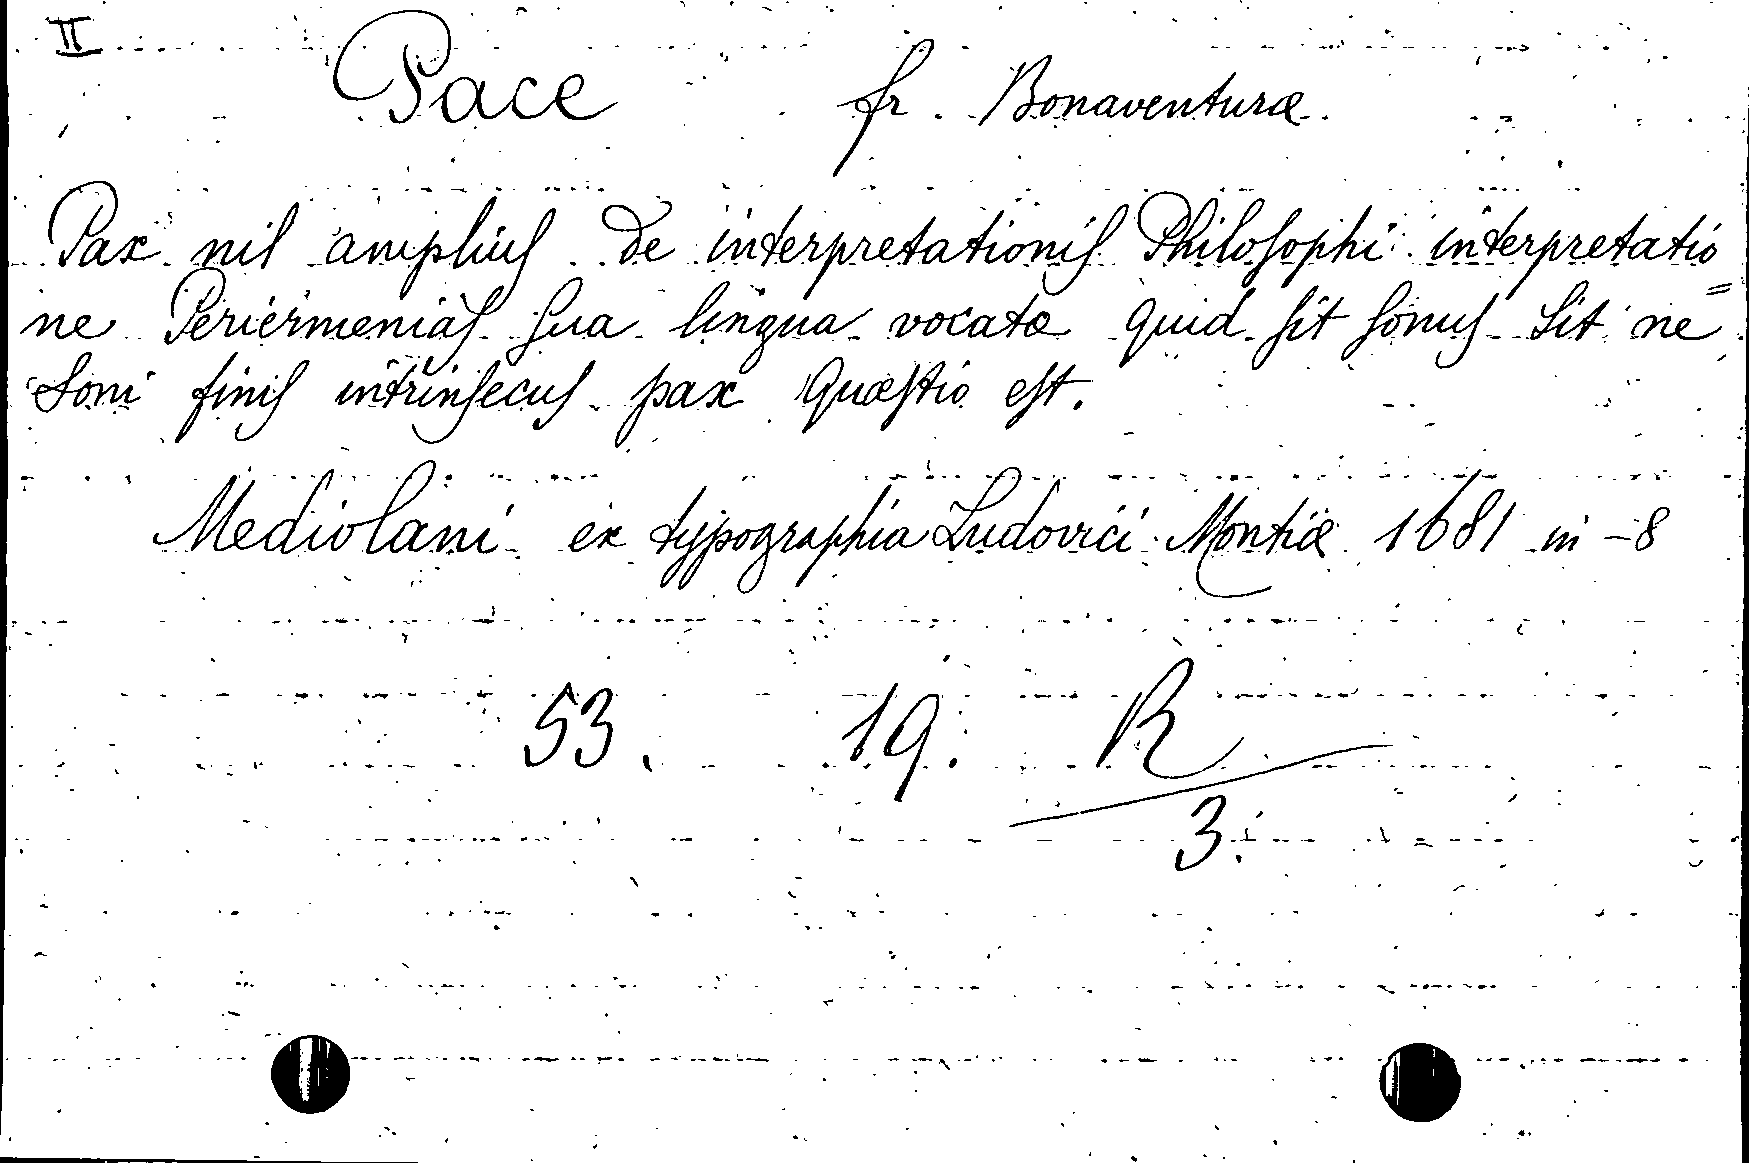 II
Pace fr. Bonaventuræ.
Pax nil amplius de interpretationis Philosophi interpretatio=
ne Perièrmenias sua lingua vocatæ quid sit sonus sit ne
soni finis intrinsecus pax Quæstio est.
Mediolani ex typographia Ludovici Montiæ 1681 in-8
53. 19. R
3.